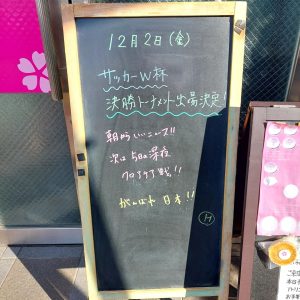 12月2日(金)
サッカーW杯
決勝トーナメント出場決定!
朝からいいニュース!!
次は5日の深夜
クロアチア戦!!
がんばれ 日本!!